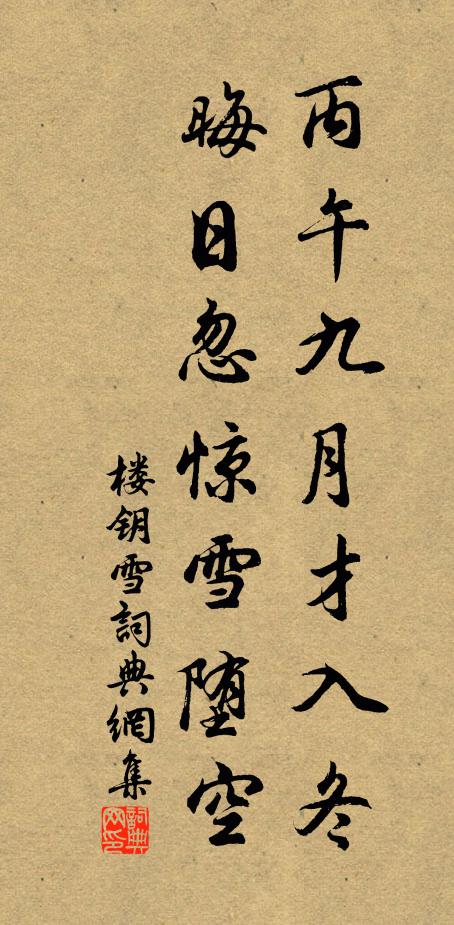 丙午九月才入冬
晦日忽惊雪堕空
楼钥雪詞典網集
詞典网印